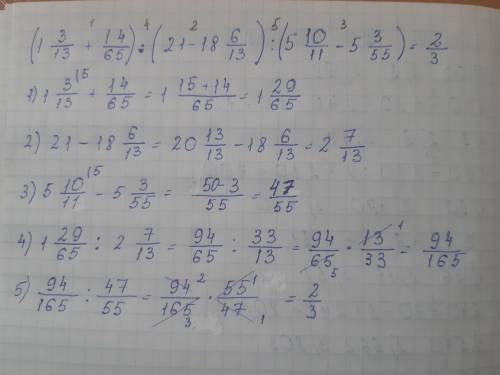 (1 3/13 + 14/65) : (21 - 18 6/13) : (5 10/11 - 5 3/55) = 2/3
1 4 2 5 3
1) 1 3/13 ¹⁵ + 14/65 = 1 (15+14)/65 = 1 29/65
2) 21 - 18 6/13 = 20 13/13 - 18 6/13 = 2 7/13
3) 5 10/11 ¹⁵ - 5 3/55 = (50-3)/55 = 47/55
4) 1 29/65 : 2 7/13 = 94/65 : 33/13 = 94/65 ₅ · 13/33 ¹ = 94/165
5) 94/165 : 47/55 = 94 ²/165 ₃ · 55 ¹/47 ₁ = 2/3